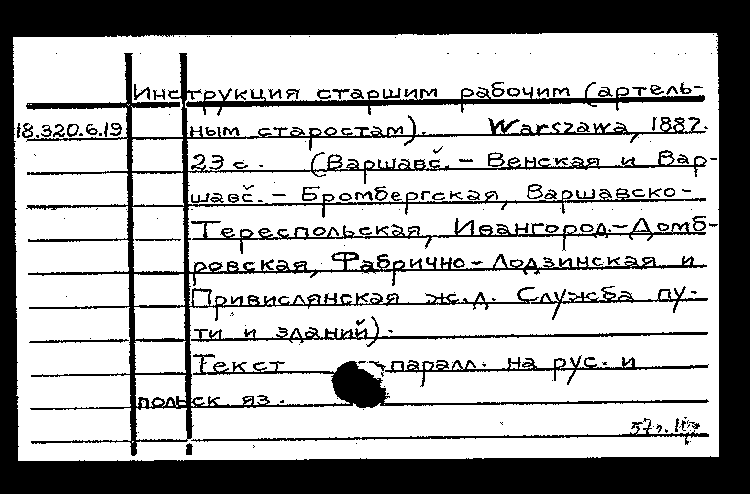 Инструкция старшим рабочим (артель-
18.320.6.19 ным старостам). Warszawa, 1887.
23 с. (Варшавс̌. - Венская и Вар-
шавс̌. - Бромбергская, Варшавско-
Тереспольская, Ивангород.-Домб-
ровская, Фабрично-Лодзинская и
Привислянская ж.д. Служба пу-
ти и зданий).
Текст паралл. на рус. и
польск яз.
57г.